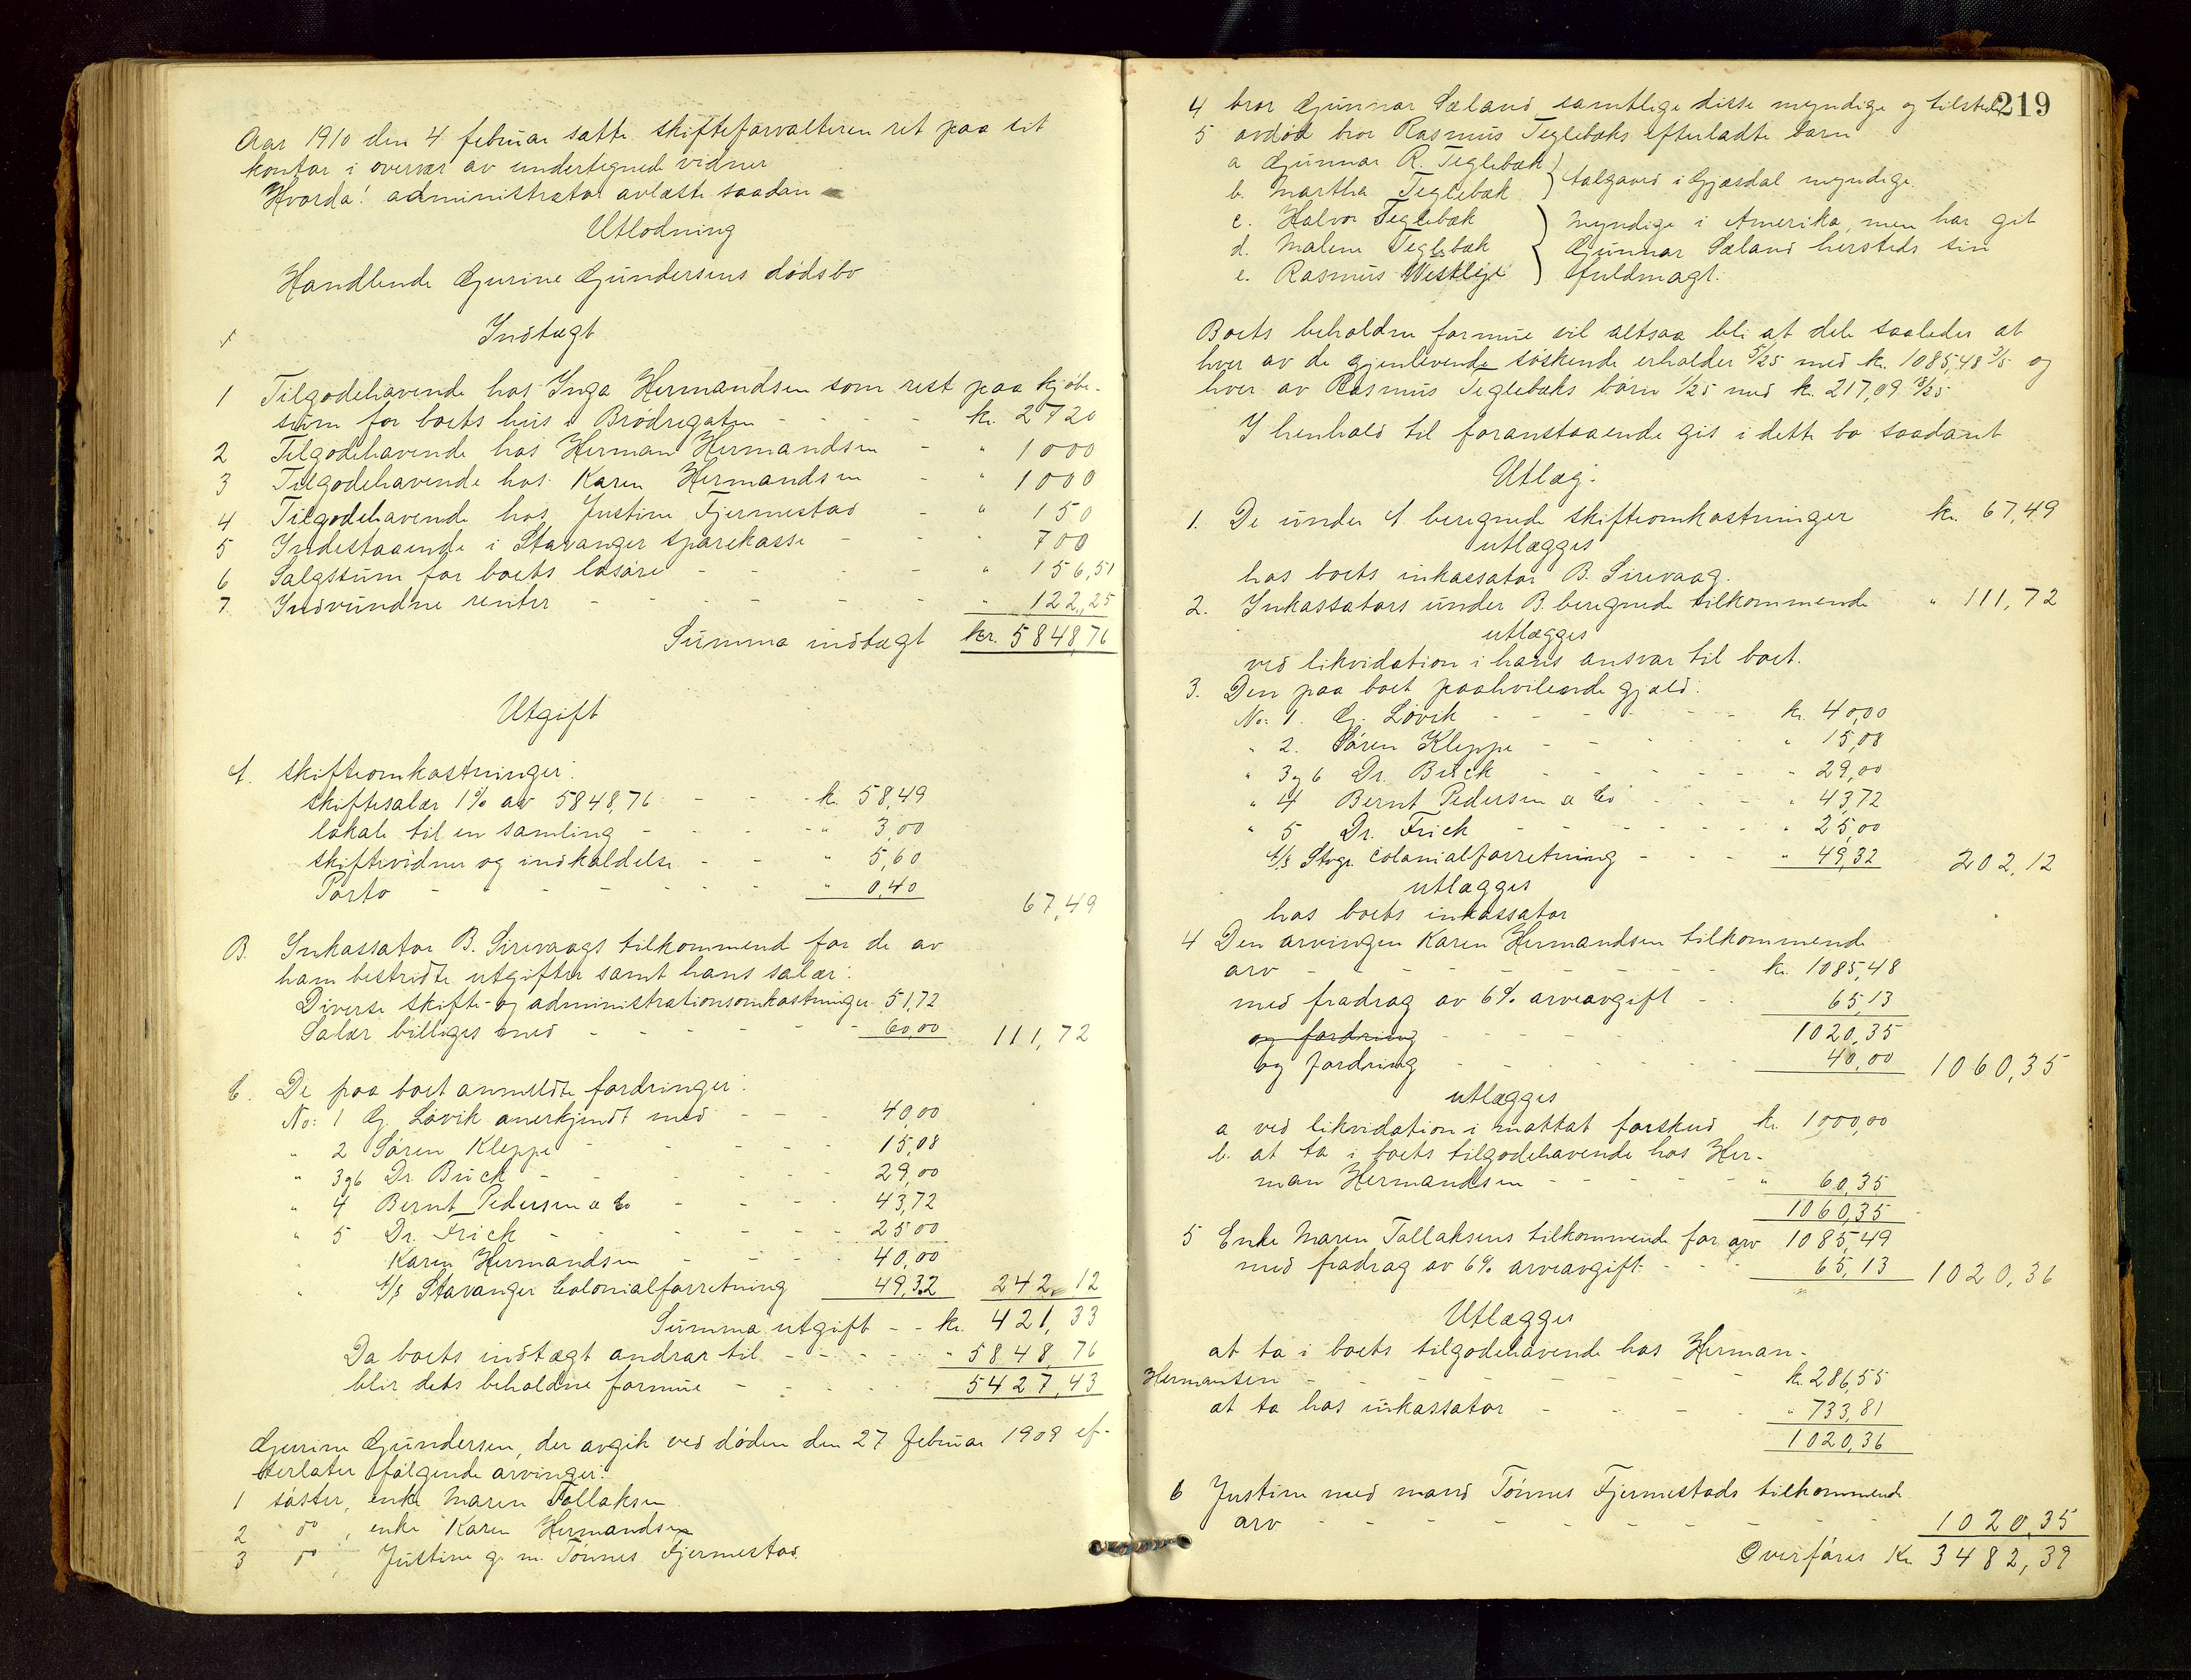 Aar 1910 den 4 februar satte skifteforvalteren ret paa sit
kontor i overvær av undertegnede vidner
Hvorda: administrator avlæste saadan
Utlodning
Handlende Gjurine Gundersens dødsbo
Indtægt
1 Tilgodehavende hos Inga Hermandsen som rest paa kjøbe-
sum for boets hus i Brødregaten - - - kr. 2720
2 Tilgodehavende hos Herman Hermandsen - " 1000
3 Tilgodehavende hos Karen Hermandsen - " 1000
4 Tilgodehavende hos Justine Fjermestad - " 150
5 Indestaaende i Stavanger sparekasse - - " 700
6 Salgssum for boets løsøre - - - - " 156,51
7 Indvundne renter - - - - - - " 122,25
Summa indtægt kr. 5848,76
Utgift
A. Skifteomkostninger:
skiftesalær 1% av 5848,76 - - - k. 58,49
lokale til en samling - - - - " 3,00
skiftevidner og indkaldelse - - " 5,60
Porto - - - - - - " 0,40 67,49
B. Inkassator B. Sirevaags tilkommende for de av
ham bestridte utgifter samt hans salær:
Diverse skifte- og administrationsomkostninger 51,72
Salær billiges med - - - - - 60,00 111,72
C. De paa boet anmeldte fordringer:
No: 1 G. Løvik anerkjendt med - - - 40,00
" 2 Søren Kleppe - - - - 15,08
" 3 og 6 Dr. Buck - - - - 29,00
" 4 Bernt Pedersen a Co - - - 43,72
" 5 Dr. Frick - - - - - 25,00
" Karen Hermandsen - - - 40,00
" A/S Stavanger Colonialforretning 49,32 242,12
Summa utgift - - kr. 421,33
Da boets indtægt andrar til - - - - " 5848,76
blir dets beholdne formue - - - - 5427,43
Gjurine Gundersen, der avgik ved døden den 27 februar 1909 ef-
terlater følgende arvinger:
1 søster, enke Maren Tollaksen
2 do, enke Karen Hermandsen
3 do, Justine g. m. Tønnes Fjermestad.
219
4 bror Gunnar Sæland samtlige disse myndige og tilstede
5 avdød bror Rasmus Teglebæks efterladte barn
a Gunnar R. Teglebæk
b. Martha Teglebæk } Aalgaard i Gjæsdal myndige.
c. Halvor Teglebæk } Myndige i Amerika, men har git
d. Malene Teglebæk { Gunnar Sæland hersteds sin
e. Rasmus Westlye ) fuldmagt.
Boets beholdne formue vil altsaa bli at dele saaledes at
hver av de gjenlevende søskende erholder 5/25 med k. 1085,48 3/5 og
hver av Rasmus Teglebæks barn 1/25 med k. 217,09 18/25
I henhold til foranstaaende gis i dette bo saadant
Utlæg.
1. De under A. beregnede skifteomkostninger kr. 67,49
utlægges
hos boets inkassator B. Sirevaag.
2. Inkassators under B. beregnede tilkommende " 111,72
utlægges
ved likvidation i hans ansvar til boet.
3. Den paa boet paahvilende gjæld:
No: 1. G. Løvik - - - - - - kr. 40,00
" 2. Søren Kleppe - - - - - " 15,08
" 3 og 6 Dr. Buck - - - - - " 29,00
" 4 Bernt Pedersen a Co - - - " 43,72
" 5 Dr. Frick - - - - - - " 25,00
A/S Stvgr. Colonialforretning - - - " 49,32 202,12
utlægges
hos boets inkassator
4 Den arvingen Karen Hermandsen tilkommende
arv - - - - - - - - kr. 1085,48
med fradrag av 6% arveavgift - - 65,13
og fordring - - - - 1020,35
og fordring - - - - - 40,00 1060,35
utlægges
a ved likvidation i mottat forskud kr. 1000,00
b. at ta i boets tilgodehavende hos Her-
man Hermandsen - - - - - " 60,35
1060,35
5 Enke Maren Tollaksens tilkommende for arv 1085,49
med fradrag av 6% arveavgift - - - 65,13 1020,36
Utlægges
at ta i boets tilgodehavende hos Herman-
Hermansen - - - - - - - - k. 286,55
at ta hos inkassator - - - - " 733,81
1020,36
6 Justine med mand Tønnes Fjermestads tilkommende
arv - - - - - - - - - 1020,35
Overføres Kr. 3482,39